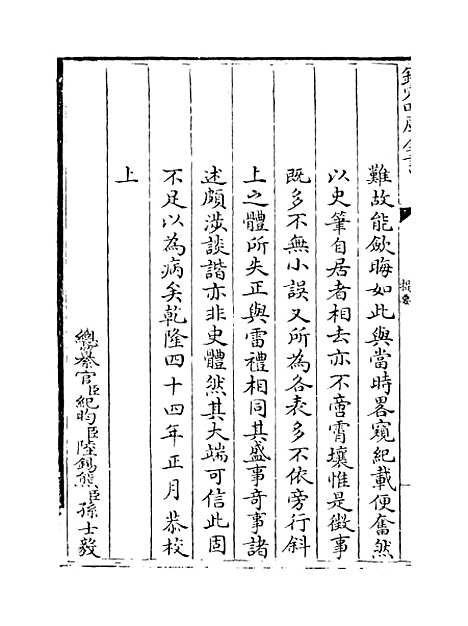 欽定四庫全書
提要
難故能歛晦如此與當時畧窺紀載便奮然
以史筆自居者相去亦不啻霄壤惟是徴事
既多不無小誤又所為各表多不依旁行斜
上之體所失正與雷禮相同其盛事竒事諸
述頗涉談諧亦非史體然其大端可信此固
不足以為病矣乾隆四十四年正月恭校
上
總纂官臣紀昀臣陸錫熊臣孫士毅